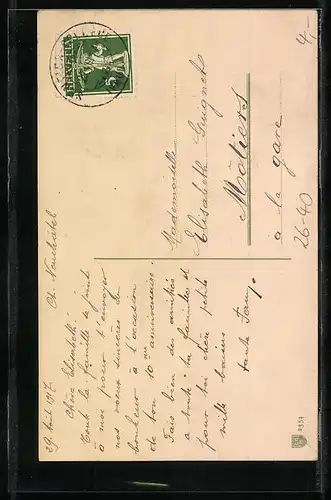 HELVETIA
5
4,-
Mademoiselle
Elisabeth Guignet
Môtiers
à la gare
26-40
Ct. Neuchâtel
1917
Chère Elisabeth!
Toute la famille se joint
à moi pour t'envoyer
nos vœux sincères de
bonheur à l'occasion
de ton 10me anniversaire.
Fais bien des amitiés
à toute ta famille et
pour toi chère petite
mille baisers
tante Fany.